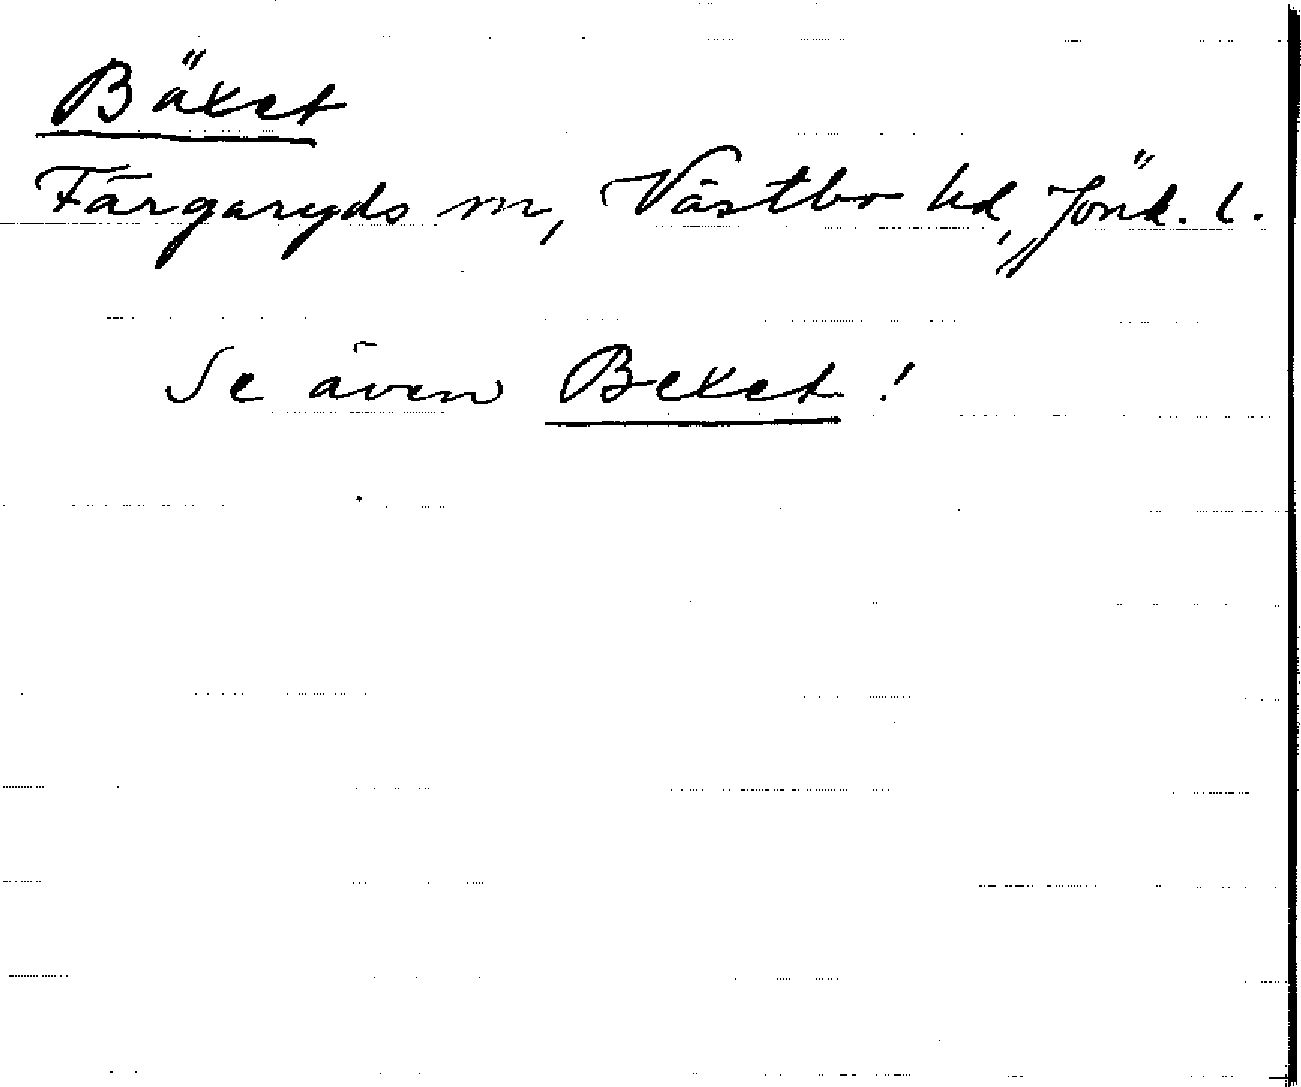 Bäxet
Färgaryds sn, Västbo hd, Jönk. l.
Se även Bexet!